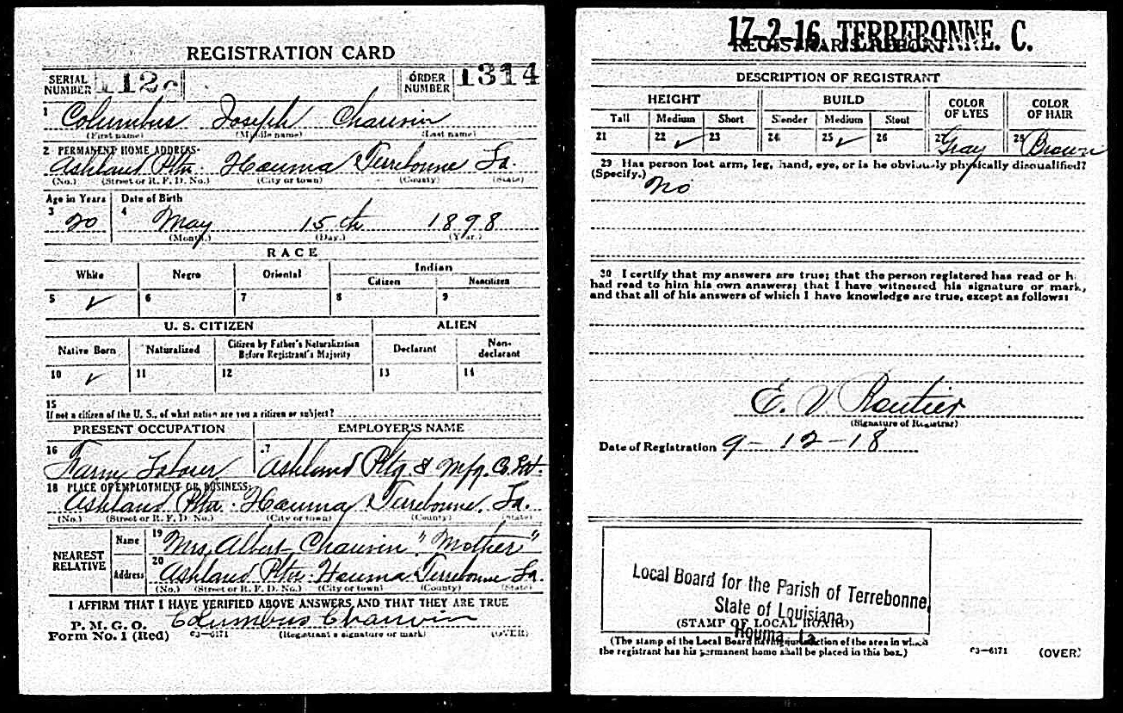 REGISTRATION CARD
SERIAL NUMBER 12
ORDER NUMBER 1314
1 Columbus Joseph Chauvin
(First name) (Middle name) (Last name)
2 PERMANENT HOME ADDRESS:
Ashland Pltn. Houma Terrebonne La.
(No.) (Street or R. F. D. No.) (City or town) (County) (State)
Age in Years Date of Birth
3 20 4 May 15th 1898
(Month.) (Day.) (Year.)
RACE
White Negro Oriental Indian
Citizen Noncitizen
5 ✓ 6 7 8 9
U. S. CITIZEN ALIEN
Native Born Naturalized Citizen by Father's Naturalization Before Registrant's Majority Declarant Non-declarant
10 ✓ 11 12 13 14
15
If not a citizen of the U. S., of what nation are you a citizen or subject?
PRESENT OCCUPATION EMPLOYER'S NAME
16 Farm Laborer 17 Ashland Pltg. & Mfg. Co.
18 PLACE OF EMPLOYMENT OR BUSINESS:
Ashland Pltn. Houma Terrebonne. La.
(No.) (Street or R. F. D. No.) (City or town) (County) (State)
NEAREST RELATIVE
Name 19 Mrs. Albert Chauvin "Mother"
Address 20 Ashland Pltn. Houma Terrebonne La.
(No.) (Street or R. F. D. No.) (City or town) (County) (State)
I AFFIRM THAT I HAVE VERIFIED ABOVE ANSWERS AND THAT THEY ARE TRUE
P. M. G. O.
Form No. 1 (Red) 03—6171 Columbus Chauvin
(Registrant's signature or mark) (OVER)
17-2-16 TERREBONNE. C.
REGISTRAR'S REPORT
DESCRIPTION OF REGISTRANT
HEIGHT BUILD COLOR OF EYES COLOR OF HAIR
Tall Medium Short Slender Medium Stout
21 22 ✓ 23 24 25 ✓ 26 27 Gray 28 Brown
29 Has person lost arm, leg, hand, eye, or is he obviously physically disqualified?
(Specify.) No
30 I certify that my answers are true; that the person registered has read or h
had read to him his own answers; that I have witnessed his signature or mark,
and that all of his answers of which I have knowledge are true, except as follows:
E. V. Rautier
(Signature of Registrar)
Date of Registration 9-12-18
Local Board for the Parish of Terrebonne,
State of Louisiana
(STAMP OF LOCAL BOARD)
Houma, La.
(The stamp of the Local Board having jurisdiction of the area in which
the registrant has his permanent home shall be placed in this box.)
03—6171 (OVER)